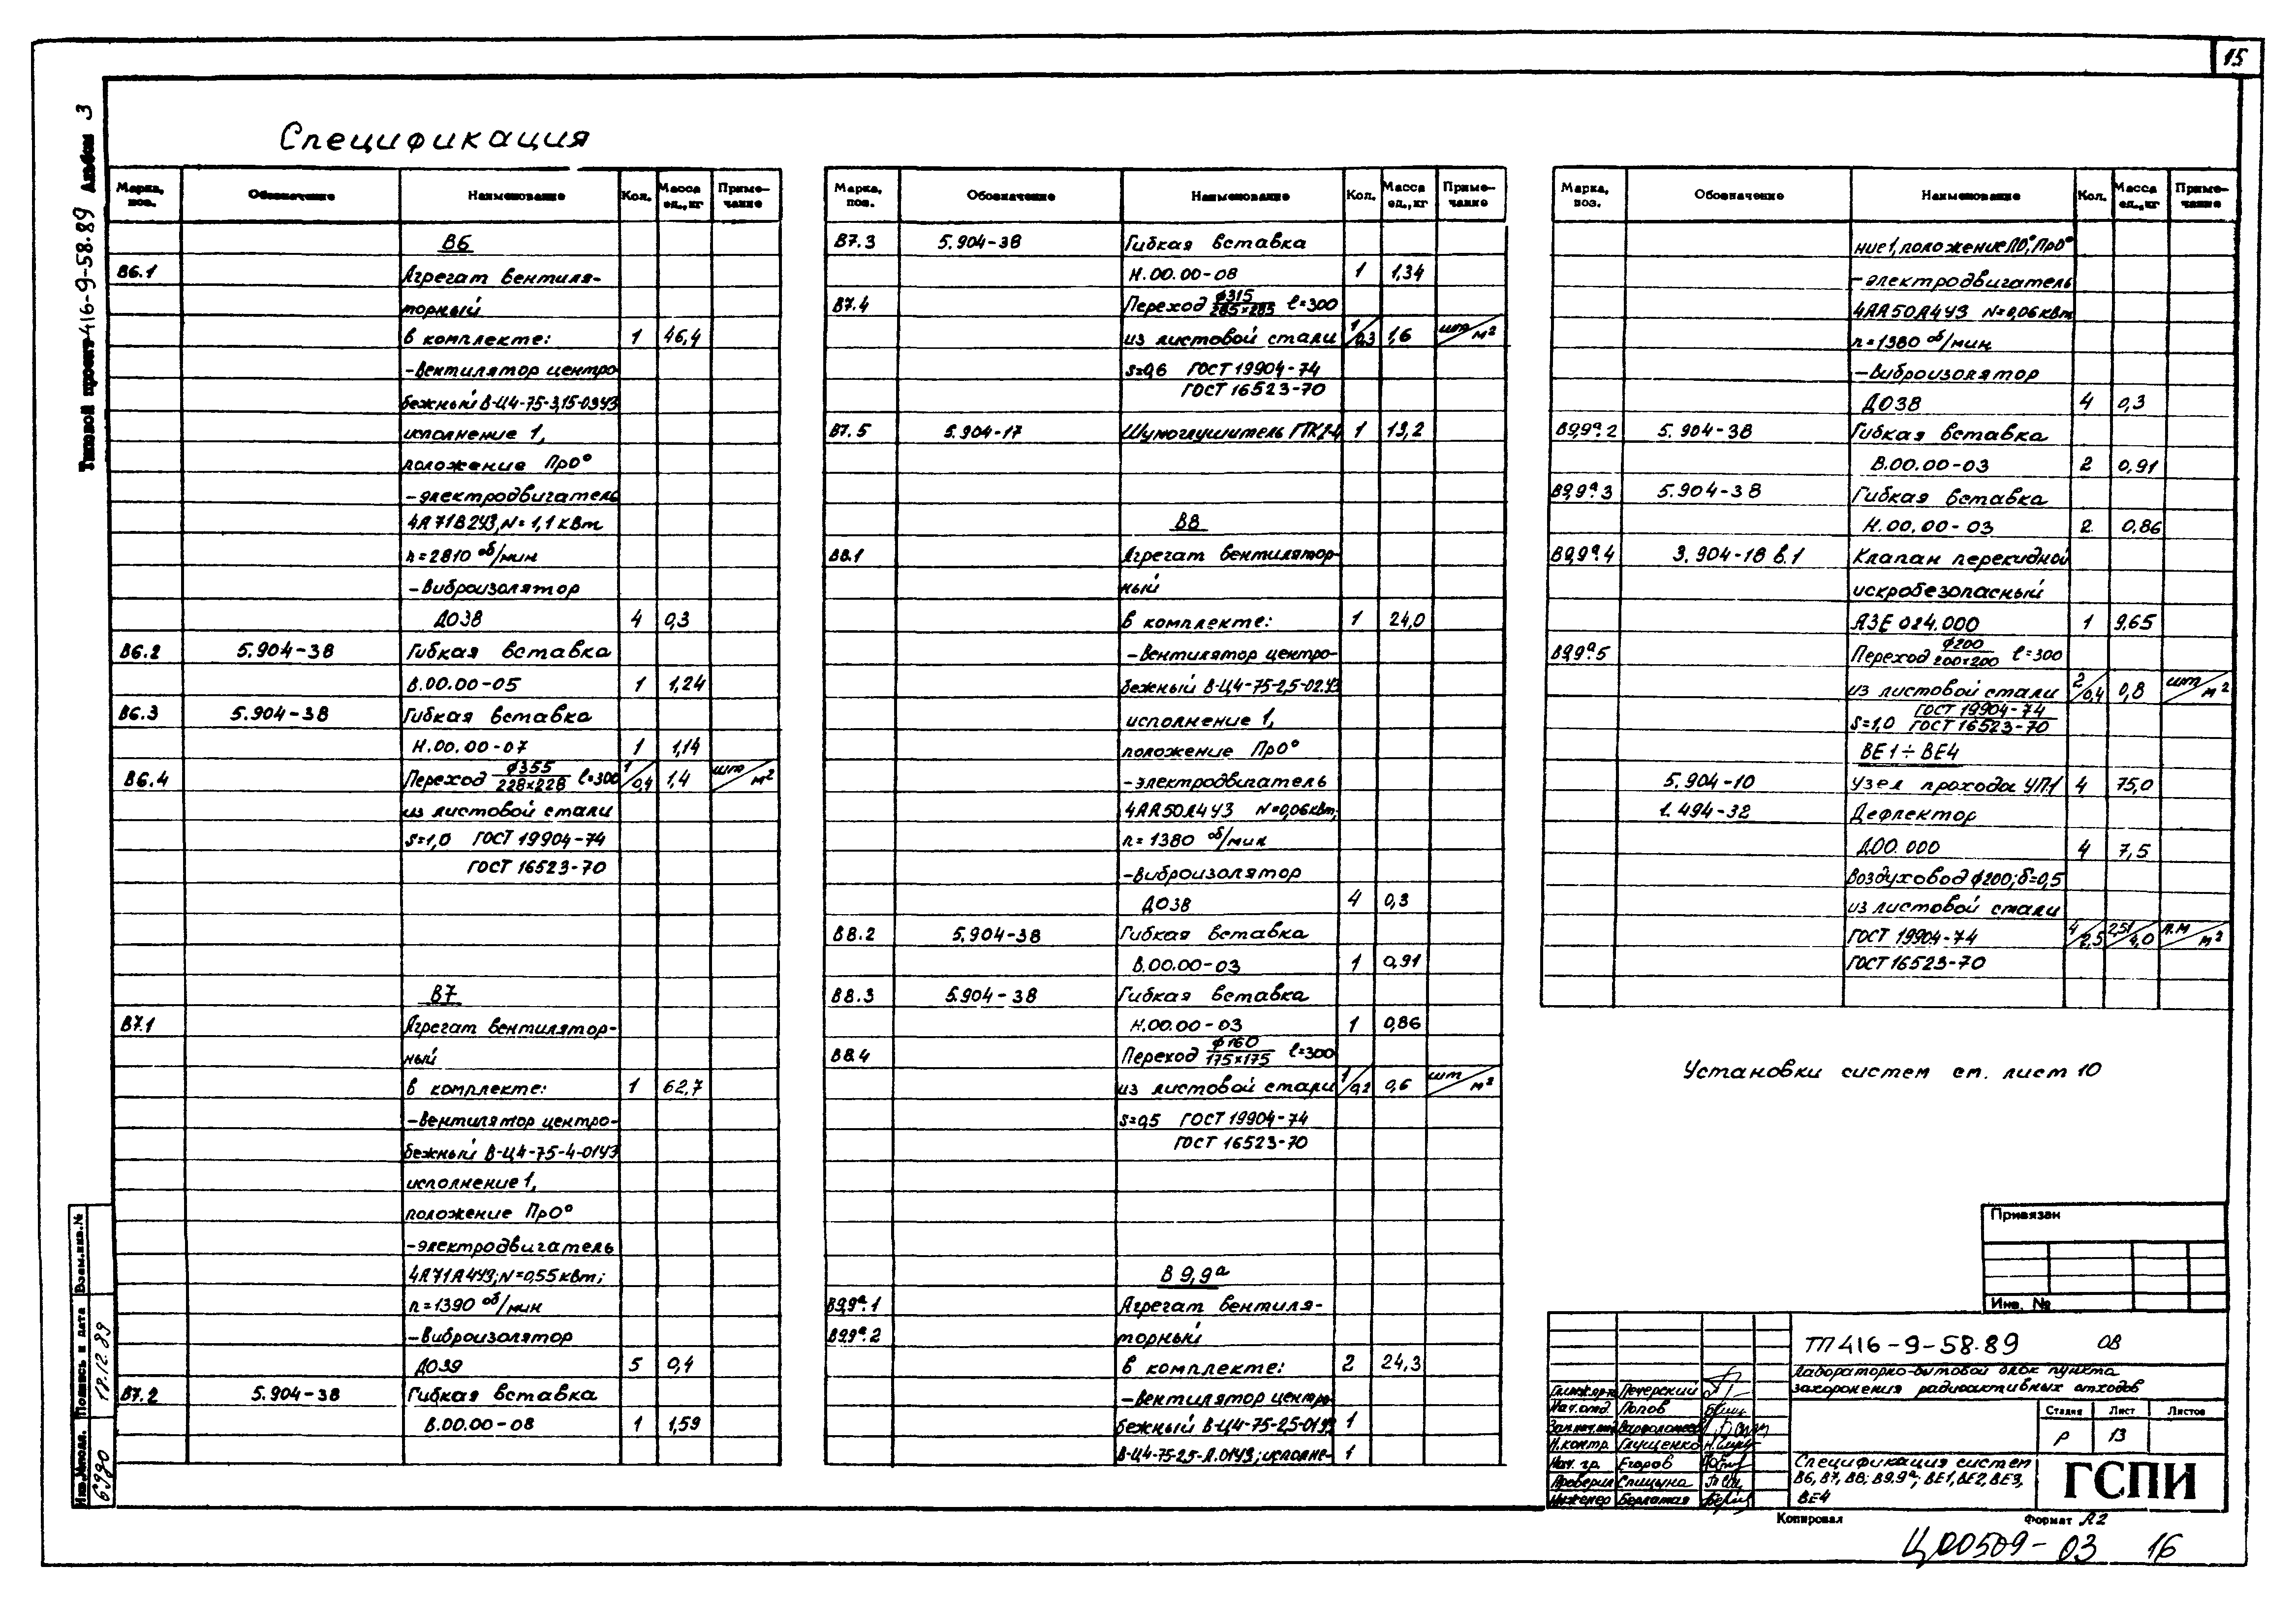 15
Типовой проект 416-9-58.89 Альбом 3
Спецификация
Марка, поз. Обозначение Наименование Кол. Масса ед., кг Примечание
В6
В6.1 Агрегат вентиля-
торный
в комплекте: 1 46,4
-Вентилятор центро
бежный В-Ц4-75-3,15-03У3
исполнение 1,
положение Пр0°
-электродвигатель
4А71В2У3, N=1,1 кВт
n=2810 об/мин
-Виброизолятор
ДО38 4 0,3
В6.2 5.904-38 Гибкая вставка
В.00.00-05 1 1,24
В6.3 5.904-38 Гибкая вставка
Н.00.00-07 1 1,14
В6.4 Переход ф355/228×228 ℓ=300 1/0,4 1,4 шт/м²
из листовой стали
s=1,0 ГОСТ 19904-74
ГОСТ 16523-70
В7
В7.1 Агрегат вентилятор-
ный
в комплекте: 1 62,7
-Вентилятор центро-
бежный В-Ц4-75-4-01У3
исполнение 1,
положение Пр0°
-электродвигатель
4А71А4У3; N=0,55 кВт;
n=1390 об/мин
-Виброизолятор
ДО39 5 0,4
В7.2 5.904-38 Гибкая вставка
В.00.00-08 1 1,59
Марка, поз. Обозначение Наименование Кол. Масса ед., кг Примечание
В7.3 5.904-38 Гибкая вставка
Н.00.00-08 1 1,34
В7.4 Переход ф315/285×285 ℓ=300
из листовой стали 1/0,3 1,6 шт/м²
s=0,6 ГОСТ 19904-74
ГОСТ 16523-70
В7.5 5.904-17 Шумоглушитель ГТК2-4 1 13,2
В8
В8.1 Агрегат вентилятор-
ный
в комплекте: 1 24,0
-Вентилятор центро-
бежный В-Ц4-75-2,5-02У3
исполнение 1,
положение Пр0°
-электродвигатель
4АА50А4У3 N=0,06 кВт,
n=1380 об/мин
-Виброизолятор
ДО38 4 0,3
В8.2 5.904-38 Гибкая вставка
В.00.00-03 1 0,91
В8.3 5.904-38 Гибкая вставка
Н.00.00-03 1 0,86
В8.4 Переход ф160/175×175 ℓ=300
из листовой стали 1/0,2 0,6 шт/м²
s=0,5 ГОСТ 19904-74
ГОСТ 16523-70
В9,9а
В9,9а.1 Агрегат вентиля-
В9,9а.2 торный
в комплекте: 2 24,3
-Вентилятор центро
бежный В-Ц4-75-2,5-01У3 1
В-Ц4-75-2,5-Л.01У3; исполне- 1
Марка, поз. Обозначение Наименование Кол. Масса ед., кг Примечание
ние 1, положение Л0°, Пр0°
-электродвигатель
4АА50А4У3 N=0,06 кВт
n=1380 об/мин
-Виброизолятор
ДО38 4 0,3
В9,9а.2 5.904-38 Гибкая вставка
В.00.00-03 2 0,91
В9,9а.3 5.904-38 Гибкая вставка
Н.00.00-03 2 0,86
В9,9а.4 3.904-18 в.1 Клапан перекидной
искробезопасный
АЗЕ 024.000 1 9,65
В9,9а.5 Переход ф200/200×200 ℓ=300
из листовой стали 2/0,4 0,8 шт/м²
s=1,0 ГОСТ 19904-74
ГОСТ 16523-70
ВЕ1÷ВЕ4
5.904-10 Узел прохода УП1 4 75,0
1.494-32 Дефлектор
Д00.000 4 7,5
Воздуховод ф200; δ=0,5
из листовой стали
ГОСТ 19904-74 4/2,5 2,51/4,0 п.м/м²
ГОСТ 16523-70
Установки систем см. лист 10
Привязан
Инв. №
ТП 416-9-58.89 ОВ
Лабораторно-бытовой блок пункта
захоронения радиоактивных отходов
Гл.инж.пр-та Печерский
Нач.отд. Попов
Зам.нач.отд Варфоломеев
Н.контр. Глущенко
Нач. гр. Егоров
Проверил Спицына
Инженер Берлатая
Стадия Лист Листов
Р 13
Спецификация систем
В6, В7, В8; В9,9а; ВЕ1, ВЕ2, ВЕ3,
ВЕ4
ГСПИ
Копировал Формат А2
Ц00509-03 16
Инв.№подл. Подпись и дата Взам.инв.№
6980 12.12.89